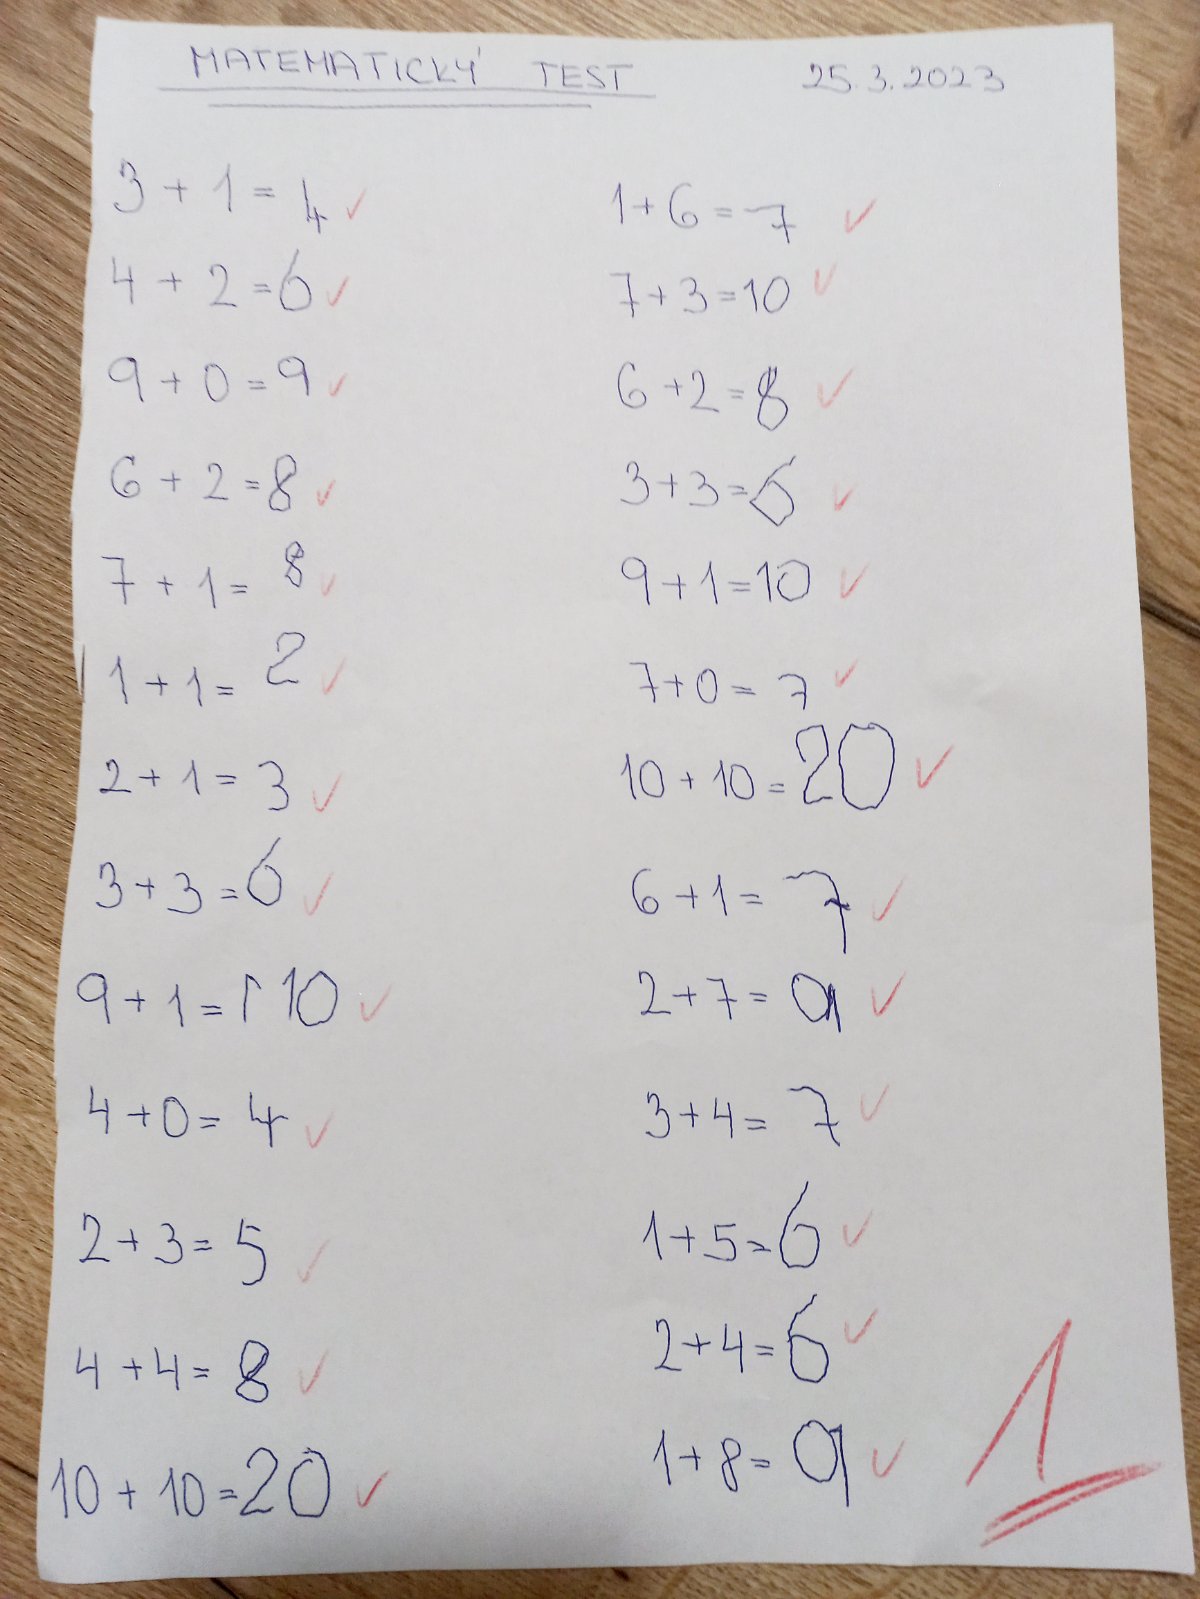 MATEMATICKÝ TEST 25.3.2023
3 + 1 = 4
4 + 2 = 6
9 + 0 = 9
6 + 2 = 8
7 + 1 = 8
1 + 1 = 2
2 + 1 = 3
3 + 3 = 6
9 + 1 = 1 10
4 + 0 = 4
2 + 3 = 5
4 + 4 = 8
10 + 10 = 20
1 + 6 = 7
7 + 3 = 10
6 + 2 = 8
3 + 3 = 6
9 + 1 = 10
7 + 0 = 7
10 + 10 = 20
6 + 1 = 7
2 + 7 = 9
3 + 4 = 7
1 + 5 = 6
2 + 4 = 6
1 + 8 = 9
1